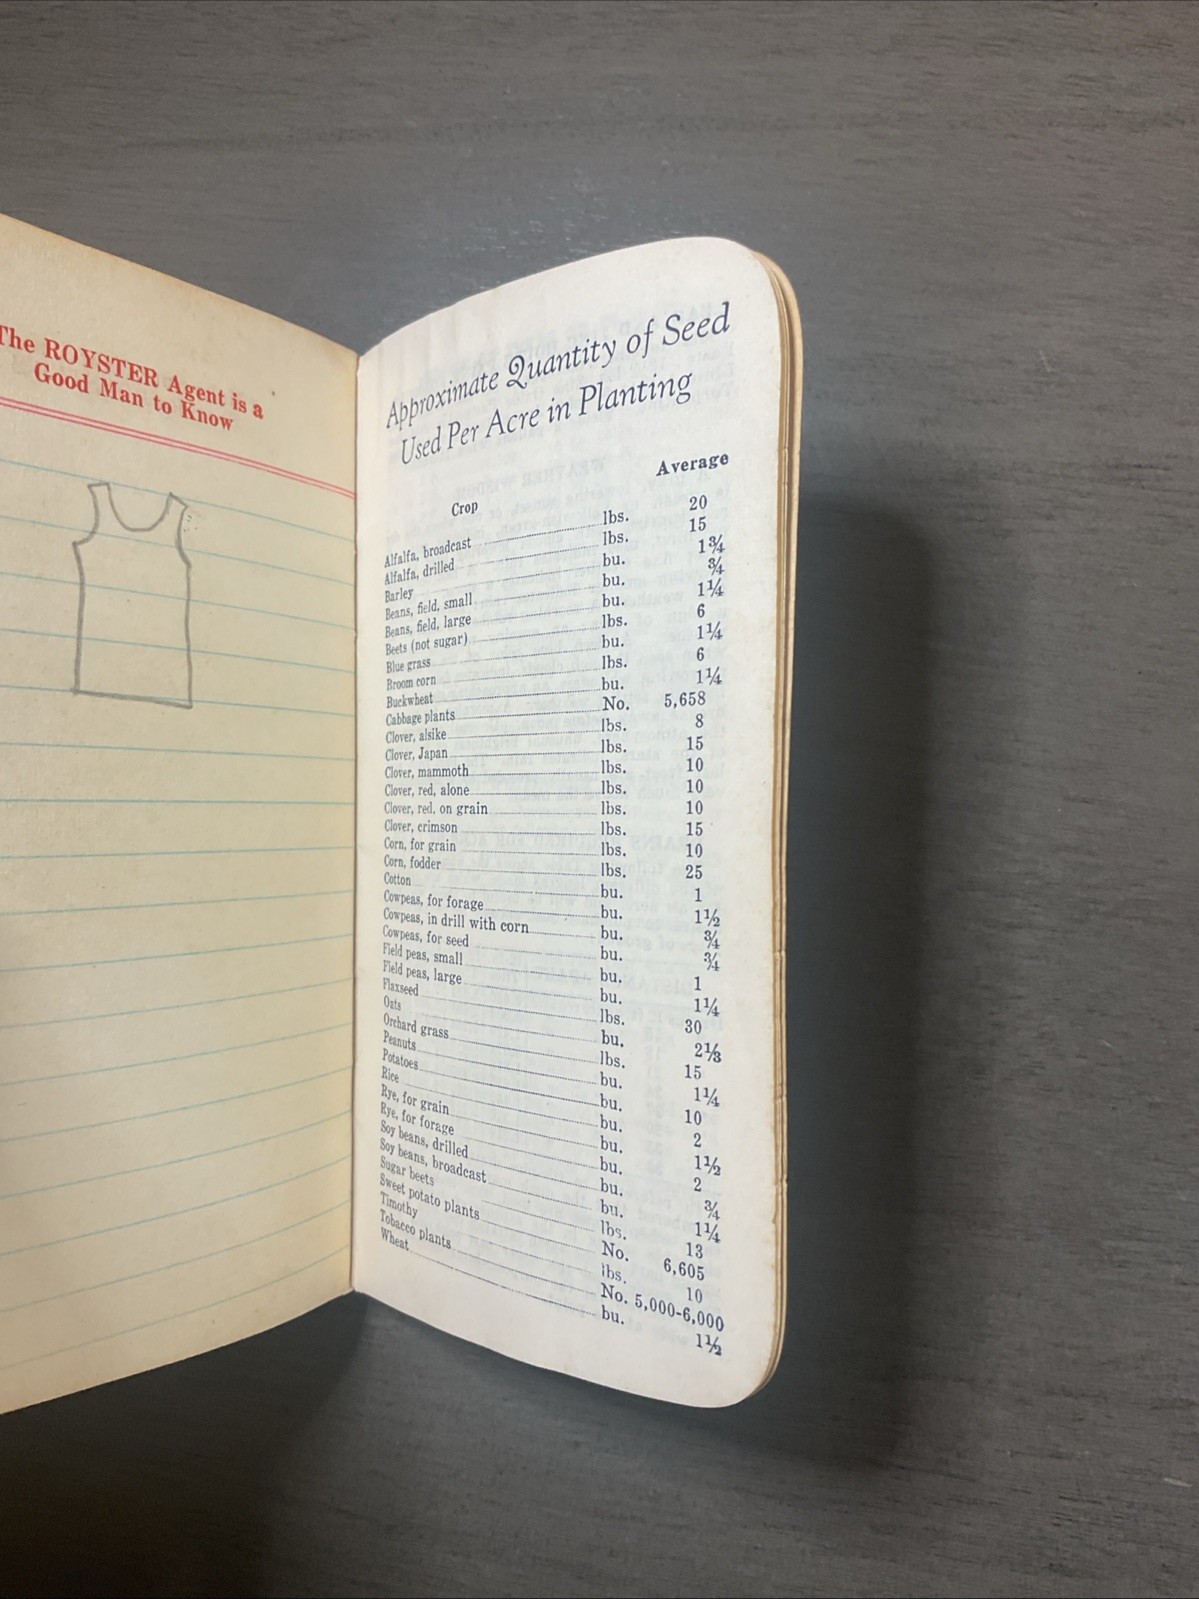 The ROYSTER Agent is a
Good Man to Know
Approximate Quantity of Seed
Used Per Acre in Planting
Crop Average
Alfalfa, broadcast lbs. 20
Alfalfa, drilled lbs. 15
Barley bu. 1¾
Beans, field, small bu. ¾
Beans, field, large bu. 1¼
Beets (not sugar) lbs. 6
Blue grass bu. 1¼
Broom corn lbs. 6
Buckwheat bu. 1¼
Cabbage plants No. 5,658
Clover, alsike lbs. 8
Clover, Japan lbs. 15
Clover, mammoth lbs. 10
Clover, red, alone lbs. 10
Clover, red, on grain lbs. 10
Clover, crimson lbs. 15
Corn, for grain lbs. 10
Corn, fodder lbs. 25
Cotton bu. 1
Cowpeas, for forage bu. 1½
Cowpeas, in drill with corn bu. ¾
Cowpeas, for seed bu. ¾
Field peas, small bu. 1
Field peas, large bu. 1¼
Flaxseed lbs. 30
Oats bu. 2⅓
Orchard grass lbs. 15
Peanuts bu. 1¼
Potatoes bu. 10
Rice bu. 2
Rye, for grain bu. 1½
Rye, for forage bu. 2
Soy beans, drilled bu. ¾
Soy beans, broadcast bu. 1¼
Sugar beets lbs. 13
Sweet potato plants No. 6,605
Timothy lbs. 10
Tobacco plants No. 5,000-6,000
Wheat bu. 1½